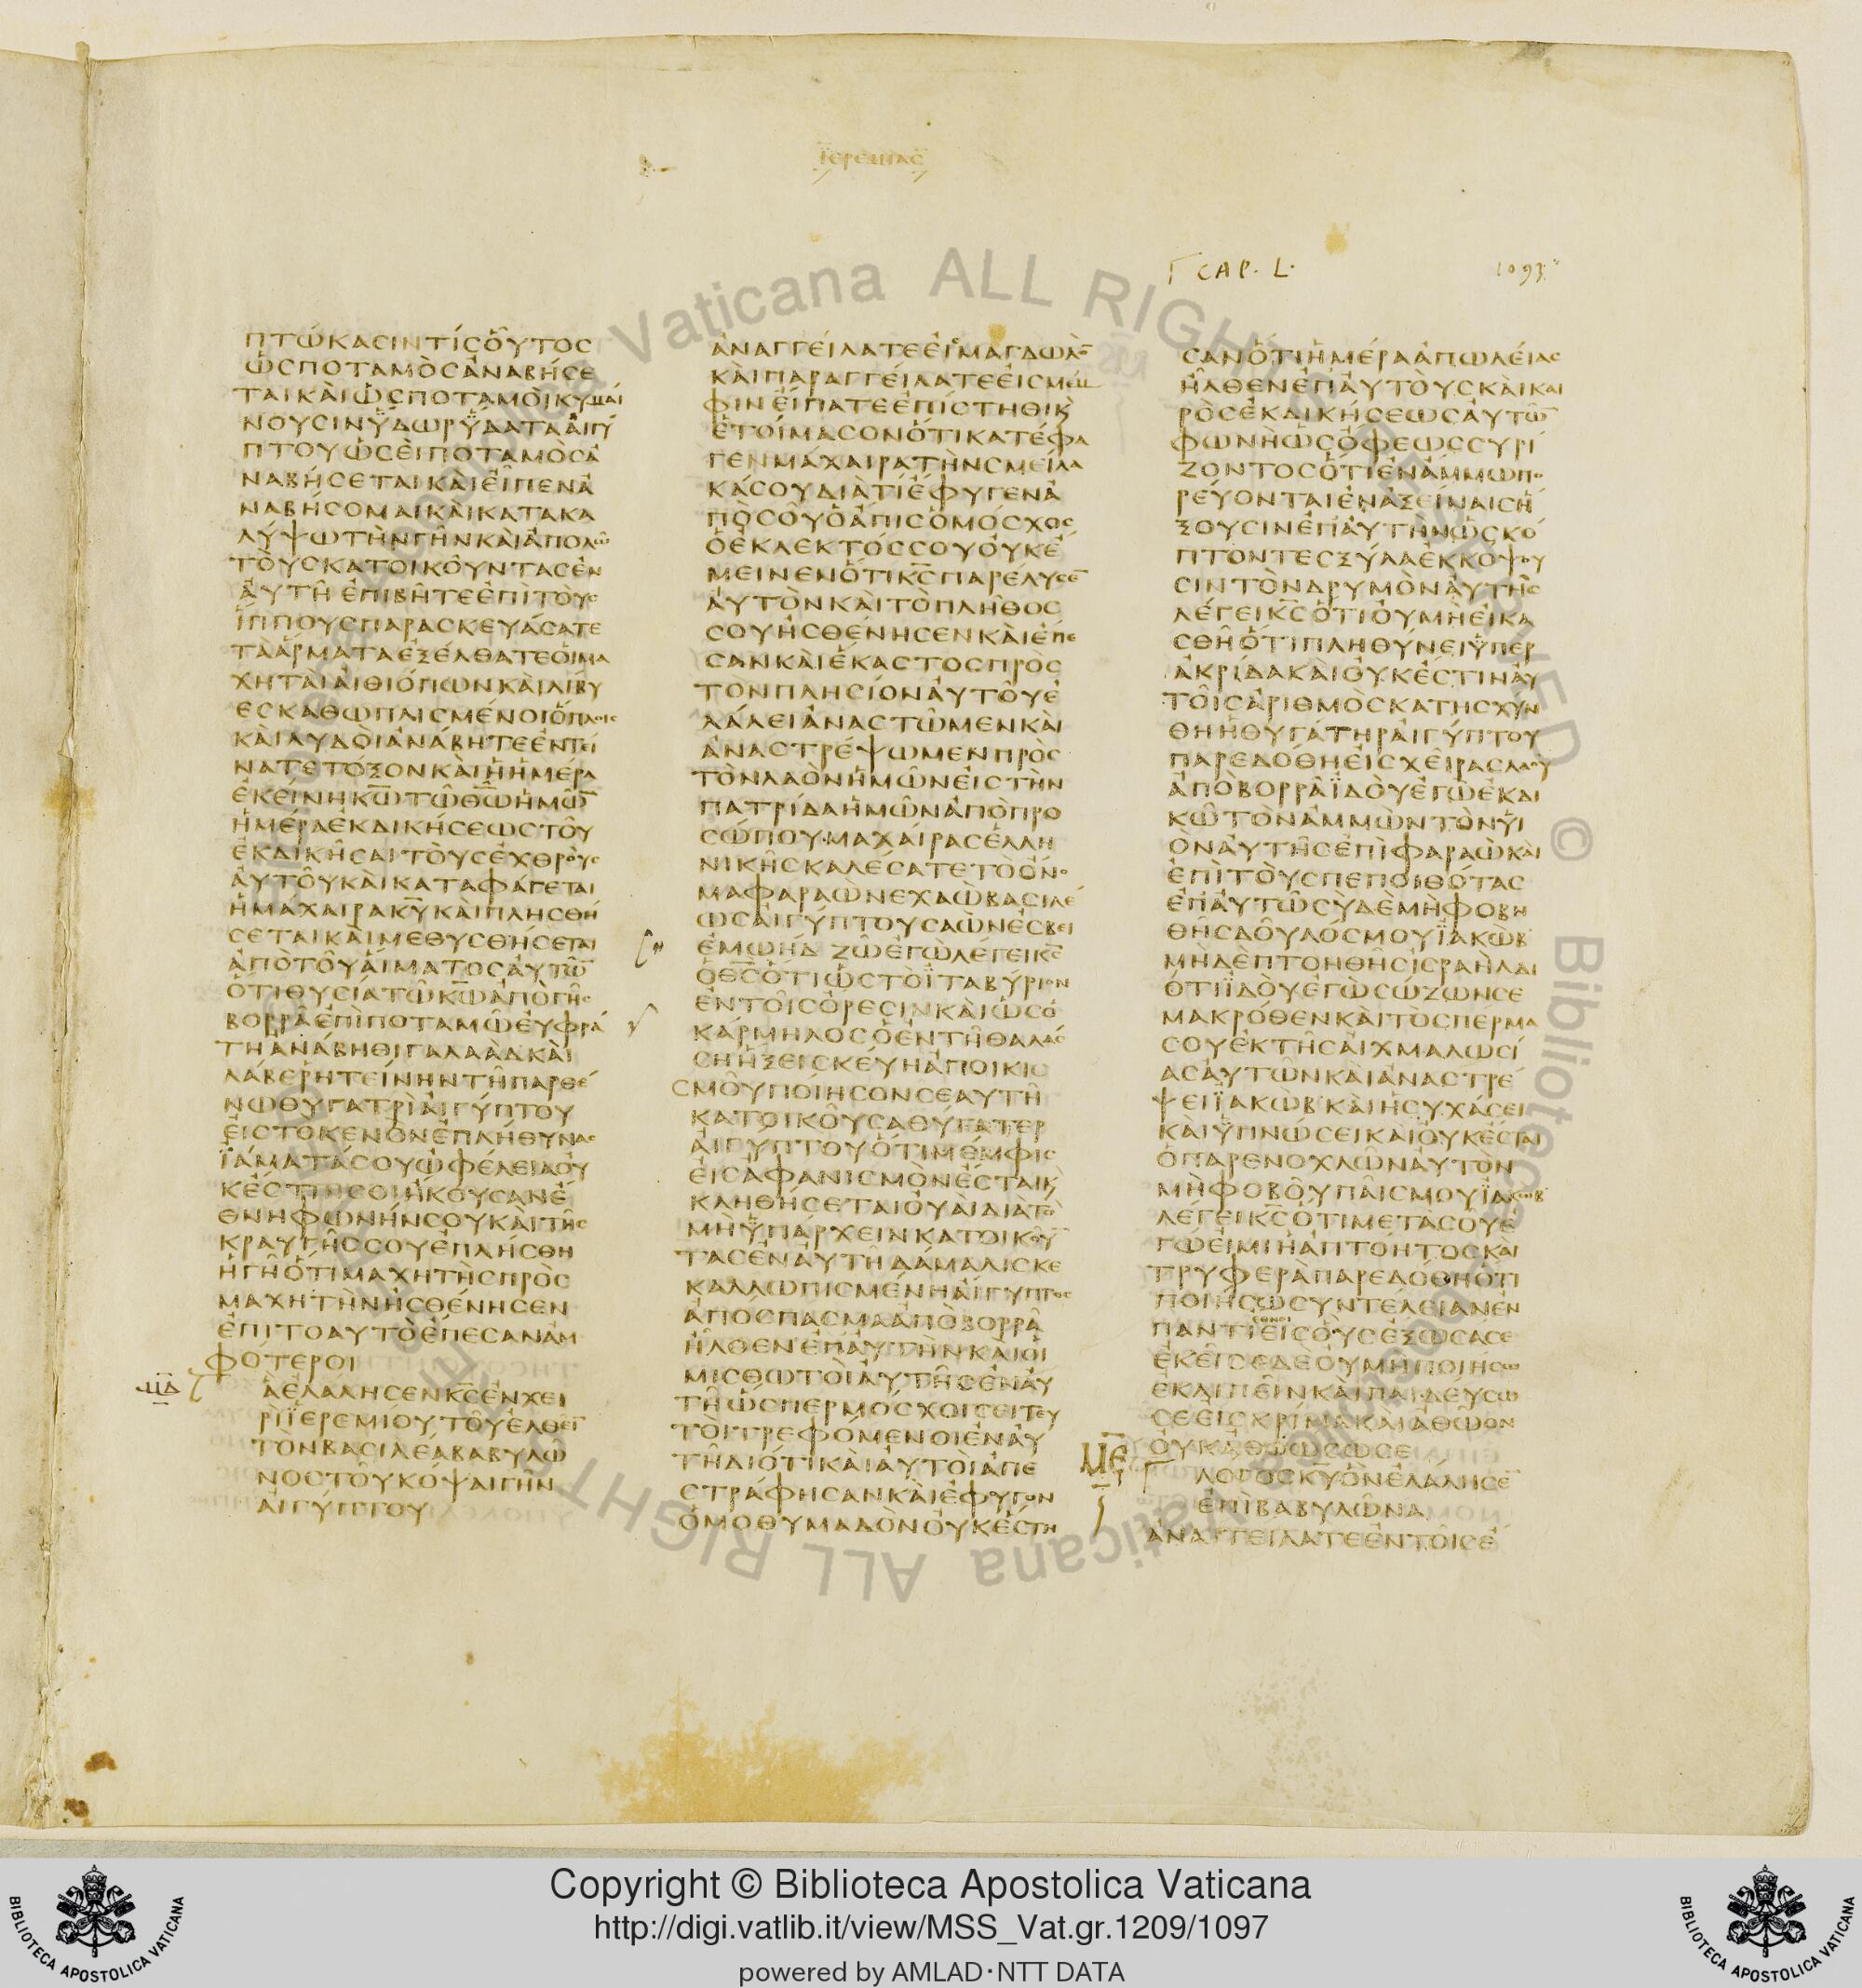 ϊερεμιας
Γ CAP. L.
1093
πτώκασιν τίς οὗτος
ὡς ποταμὸς ἀναβήσε
ται καὶ ὡς ποταμοὶ κυμαί
νουσιν ὕδωρ ὕδατα αἰγύ
πτου ὡσεὶ ποταμὸς ἀ
ναβήσεται καὶ εἶπεν ἀ
ναβήσομαι καὶ κατακα
λύψω τὴν γῆν καὶ ἀπολῶ
τοὺς κατοικοῦντας ἐν
αὐτῇ ἐπίβητε ἐπὶ τοὺς
ἵππους παρασκευάσατε
τὰ ἅρματα ἐξέλθατε οἱ μα
χηταὶ αἰθιόπων καὶ λίβυ
ες καθωπλισμένοι ὅπλοις
καὶ λυδοὶ ἀνάβητε ἐντεί
νατε τόξον καὶ ἡ ἡμέρα
ἐκείνη κω τῷ θω ἡμῶν
ἡμέρα ἐκδικήσεως τοῦ
ἐκδικῆσαι τοὺς ἐχθροὺς
αὐτοῦ καὶ καταφάγεται
ἡ μάχαιρα κυ καὶ πλησθή
σεται καὶ μεθυσθήσεται
ἀπὸ τοῦ αἵματος αὐτῶν
ὅτι θυσία τῷ κω ἀπὸ γῆς
βορρᾶ ἐπὶ ποταμῷ εὐφρά
τῃ ἀνάβηθι γαλαὰδ καὶ
λάβε ρητείνην τῇ παρθέ
νῳ θυγατρὶ αἰγύπτου
εἰς τὸ κενὸν ἐπλήθυνας
ϊάματά σου ὠφέλεια οὐ
κ ἔστιν σοι ἤκουσαν ἔ
θνη φωνήν σου καὶ τῆς
κραυγῆς σου ἐπλήσθη
ἡ γῆ ὅτι μαχητὴς πρὸς
μαχητὴν ἠσθένησεν
ἐπιτοαυτὸ ἔπεσαν ἀμ
φότεροι
μδ ἃ ἐλάλησεν κς ἐν χει
ρὶ ϊερεμίου τοῦ ἐλθεῖν
τὸν βασιλέα βαβυλῶ
νος τοῦ κόψαι γῆν
αἰγύπτου
ἀναγγείλατε εἰς μαγδωλὸν
καὶ παραγγείλατε εἰς μέμ
φιν εἴπατε ἐπίστηθι κὶ
ἑτοίμασον ὅτι κατέφα
γεν μάχαιρα τὴν σμείλα
κά σου διὰ τί ἔφυγεν ἀ
πὸ σοῦ ὁ ἆπις ὁ μόσχος
ὁ ἐκλεκτός σου οὐκ ἔ
μεινεν ὅτι κς παρέλυσεν
αὐτὸν καὶ τὸ πλῆθος
σου ἠσθένησεν καὶ ἔπε
σαν καὶ ἕκαστος πρὸς
τὸν πλησίον αὐτοῦ ἐ
λάλει ἀναστῶμεν καὶ
ἀναστρέψωμεν πρὸς
τὸν λαὸν ἡμῶν εἰς τὴν
πατρίδα ἡμῶν ἀπὸ προ
σώπου μαχαίρας ἑλλη
νικῆς καλέσατε τὸ ὄνο
μα φαραὼ νεχαὼ βασιλέ
ως αἰγύπτου σαὼν ἐσβει
ἐμωήδ ζῶ ἐγὼ λέγει κς
ὁ θς ὅτι ὡς τὸ ϊταβύριον
ἐν τοῖς ὄρεσιν καὶ ὡς ὁ
κάρμηλος ὁ ἐν τῇ θαλάσ
σῃ ἥξει σκεύη ἀποικισ
σμοῦ ποίησον σεαυτῇ
κατοικοῦσα θύγατερ
αἰγύπτου ὅτι μέμφις
εἰς ἀφανισμὸν ἔσται κὶ
κληθήσεται οὐαὶ διὰ τὸ
μὴ ὑπάρχειν κατοικοῦν
τας ἐν αὐτῇ δάμαλις κε
καλλωπισμένη αἴγυπτος
ἀπόσπασμα ἀπὸ βορρᾶ
ἦλθεν ἐπ αὐτὴν καὶ οἱ
μισθωτοὶ αὐτῆς ἐν αὐ
τῇ ὥσπερ μόσχοι σειτευ
τοὶ τρεφόμενοι ἐν αὐ
τῇ διότι καὶ αὐτοὶ ἀπε
στράφησαν καὶ ἔφυγον
ὁμοθυμαδὸν οὐκ ἔστη
σαν ὅτι ἡμέρα ἀπωλείας
ἦλθεν ἐπ αὐτοὺς καὶ και
ρὸς ἐκδικήσεως αὐτῶν
φωνὴ ὡς ὄφεως συρί
ζοντος ὅτι ἐν ἄμμῳ πο
ρεύονται ἐν ἀξείναις ἥ
ξουσιν ἐπ αὐτὴν ὡς κό
πτοντες ξύλα ἐκκόψου
σιν τὸν δρυμὸν αὐτῆς
λέγει κς ὅτι οὐ μὴ εἰκα
σθῇ ὅτι πληθύνει ὑπερ
ἀκρίδα καὶ οὐκ ἔστιν αὐ
τοῖς ἀριθμὸς κατῃσχύν
θη ἡ θυγάτηρ αἰγύπτου
παρεδόθη εἰς χεῖρας λαοῦ
ἀπὸ βορρᾶ ϊδοὺ ἐγὼ ἐκδι
κῶ τὸν ἀμμὼν τὸν υἱ
ὸν αὐτῆς ἐπὶ φαραὼ καὶ
ἐπὶ τοὺς πεποιθότας
ἐπ αὐτῷ σὺ δὲ μὴ φοβη
θῇς δοῦλός μου ϊακὼβ
μηδὲ πτοηθῇς ισραὴλ δι
ότι ϊδοὺ ἐγὼ σώζων σε
μακρόθεν καὶ τὸ σπέρμα
σου ἐκ τῆς αἰχμαλωσί
ας αὐτῶν καὶ ἀναστρέ
ψει ϊακὼβ καὶ ἡσυχάσει
καὶ ὑπνώσει καὶ οὐκ ἔσται
ὁ παρενοχλῶν αὐτὸν
μὴ φοβοῦ παῖς μου ϊακωβ
λέγει κς ὅτι μετὰ σοῦ ἐ
γώ εἰμι ἡ ἀπτόητος καὶ
τρυφερὰ παρεδόθη ὅτι
ποιήσω συντέλειαν ἐν
παντὶ ἔθνει εἰς οὓς ἐξῶσά σε
ἐκεῖ σε δὲ οὐ μὴ ποιήσω
ἐκλιπεῖν καὶ παιδεύσω
σε εἰς κρίμα καὶ ἀθῷον
οὐκ ἀθῳώσω σε
με λόγος κυ ὃν ἐλάλησεν
ἐπὶ βαβυλῶνα
ἀναγγείλατε ἐν τοῖς ἔ
Copyright © Biblioteca Apostolica Vaticana
http://digi.vatlib.it/view/MSS_Vat.gr.1209/1097
powered by AMLAD·NTT DATA
BIBLIOTECA APOSTOLICA VATICANA
BIBLIOTECA APOSTOLICA VATICANA
Biblioteca Apostolica Vaticana ALL RIGHTS RESERVED ©